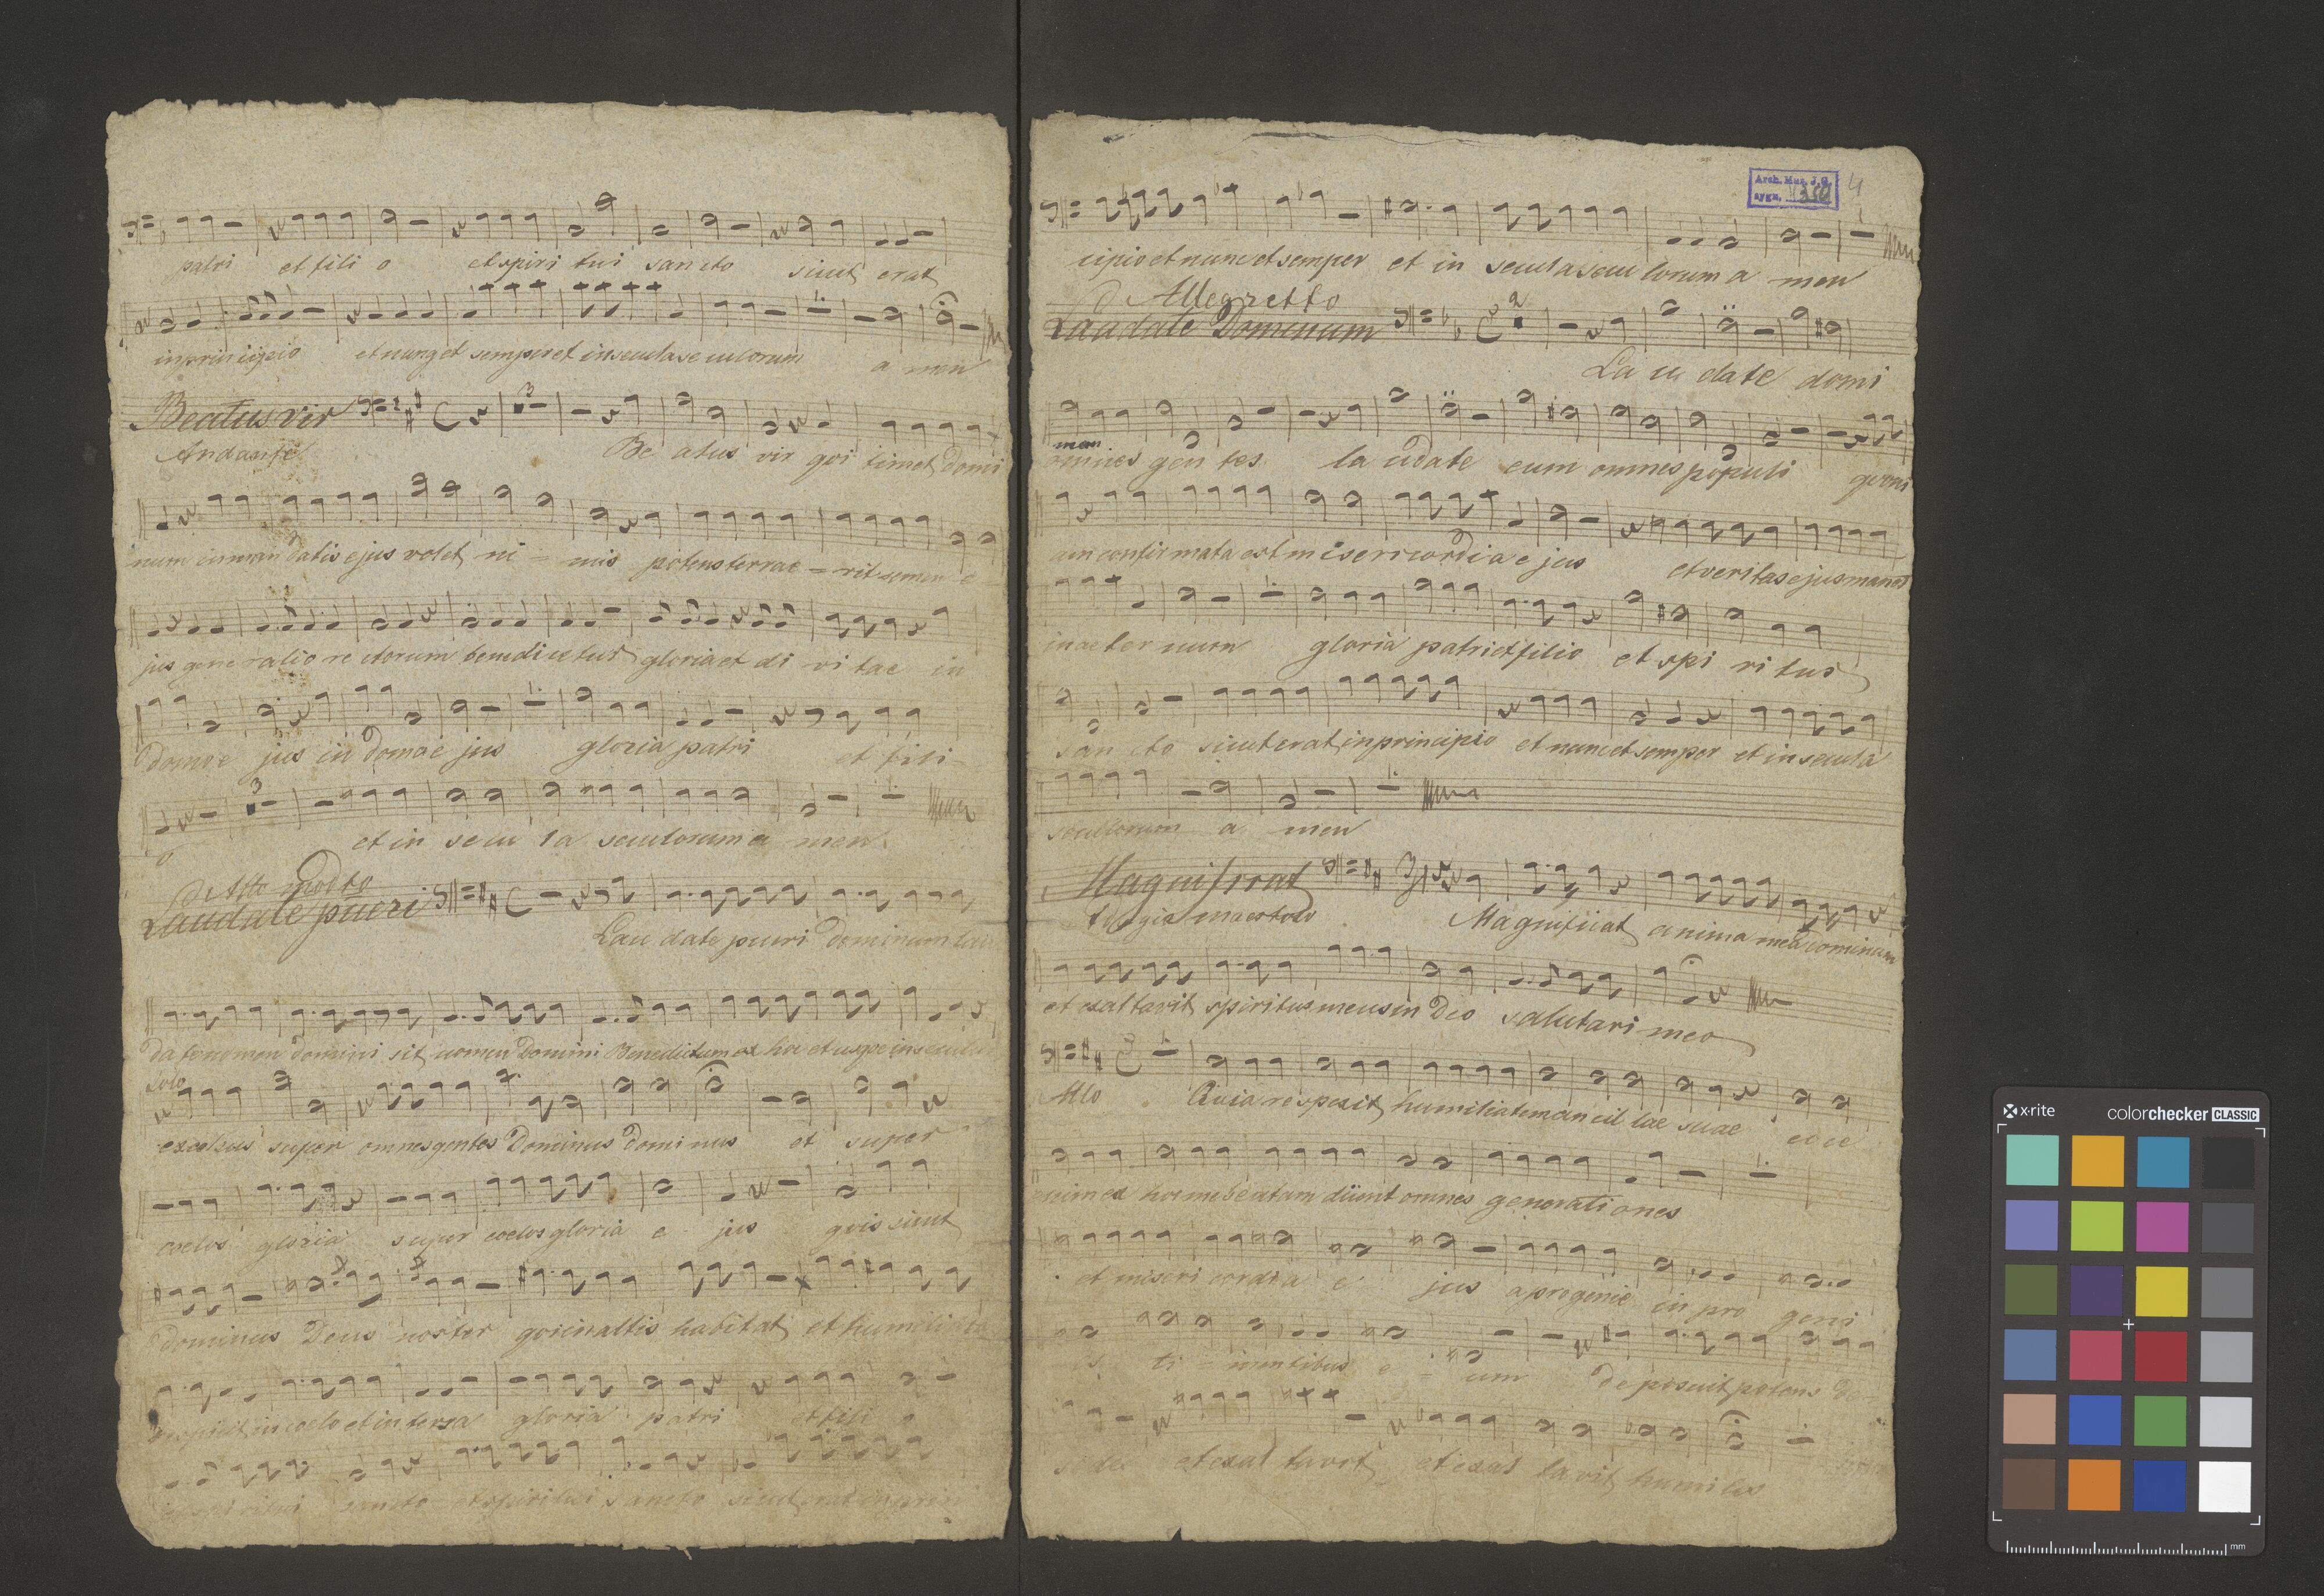 patri et fili o et spiri tui sancto sicut erat
in principio et nunc et semper et in secula seculorum a men
Beatus vir
Andante
Be atus vir qvi timet domi
num in mandatis ejus volet ni = mis potens terrae = rit semen e
jus generatio rectorum benedicetur gloria et di vi tae in
domo e jus in domo e jus gloria patri et fili
o et in secu la seculorum a men
Allo modto
Laudate pueri
Lau date pueri Dominum lau
date nomen domini sit nomen Domini Benedictum ex hoc et usqve in seculum
solo
excelsus super omnes gentes Dominus dominus et super
coelos gloria super coelos gloria e jus qvis sicut
dominus Deus noster qvi in altis habitat et humilia
respicit in coelo et in terra gloria patri et fili o
et spiritui sancto et spiritui sancto sicut erat in prin
Arch. Muz. J. G.
sygn. 350
4
cipio et nunc et semper et in secula seculorum a men
Allegretto
Laudate Dominum
La u date domi
num
omnes gen tes la udate eum omnes populi qvoni
am confirmata est misericordia ejus et veritas ejus manet
in aeter num gloria patri et filio et spi ri tus
san cto sicut erat in principio et nunc et semper et in secula
seculorum a men
Magnificat
maestoso
Magnificat anima mea dominum
et exaltavit spiritus meus in Deo salutari meo
Allo Qvia respexit humilitatem ancil lae suae ecce
enim ex hoc me beatam dicent omnes generati ones
et miseri cordia e jus a progenie in pro geni
es ti mentibus e = um deposuit potens de
sede et exal tavit et exal tavit humiles